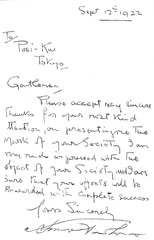 Sept 12th 1922
To
Posi-Kai
Tokyo
Gentlemen
Please accept my sincere
thanks for your most kind
attention in presenting me the
mark of your Society I am
very much impressed with the
object of your Society and am
sure that your efforts will be
rewarded with complete success
Yours Sincerely